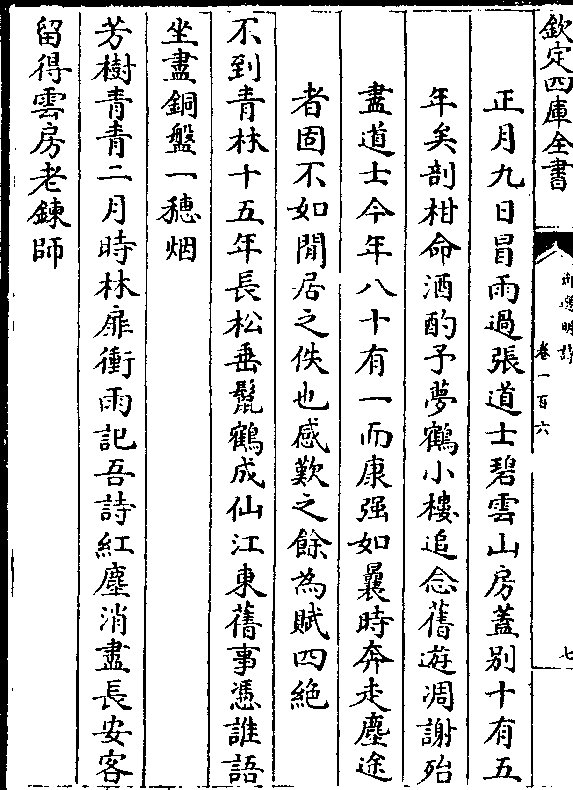 欽定四庫全書
御選明詩
卷一百六
七
正月九日冒雨過張道士碧雲山房蓋別十有五
年矣剖柑命酒酌予夢鶴小樓追念舊遊凋謝殆
盡道士今年八十有一而康强如曩時奔走塵途
者固不如閒居之佚也感歎之餘為賦四絶
不到青林十五年長松垂鬛鶴成仙江東舊事憑誰語
坐盡銅盤一穗烟
芳樹青青二月時林扉衝雨記吾詩紅塵消盡長安客
留得雲房老鍊師